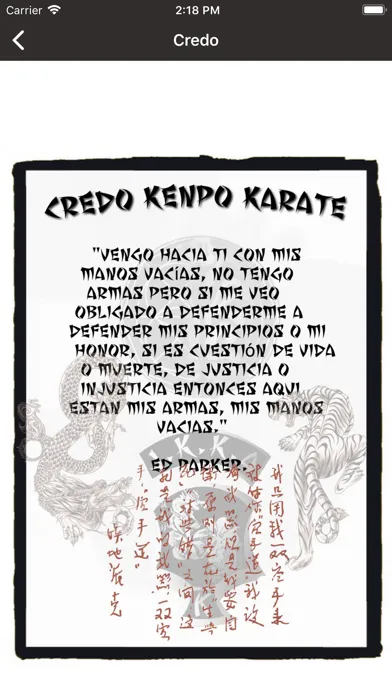 Carrier
2:18 PM
Credo
CREDO KENPO KARATE
"VENGO HACIA TI CON MIS
MANOS VACÍAS, NO TENGO
ARMAS PERO SI ME VEO
OBLIGADO A DEFENDERME A
DEFENDER MIS PRINCIPIOS O MI
HONOR, SI ES CUESTIÓN DE VIDA
O MUERTE, DE JUSTICIA O
INJUSTICIA ENTONCES AQUI
ESTAN MIS ARMAS, MIS MANOS
VACIAS."
ED PARKER.
I.K.K.A
我只用我一双空手来
空手道
手"空手道"